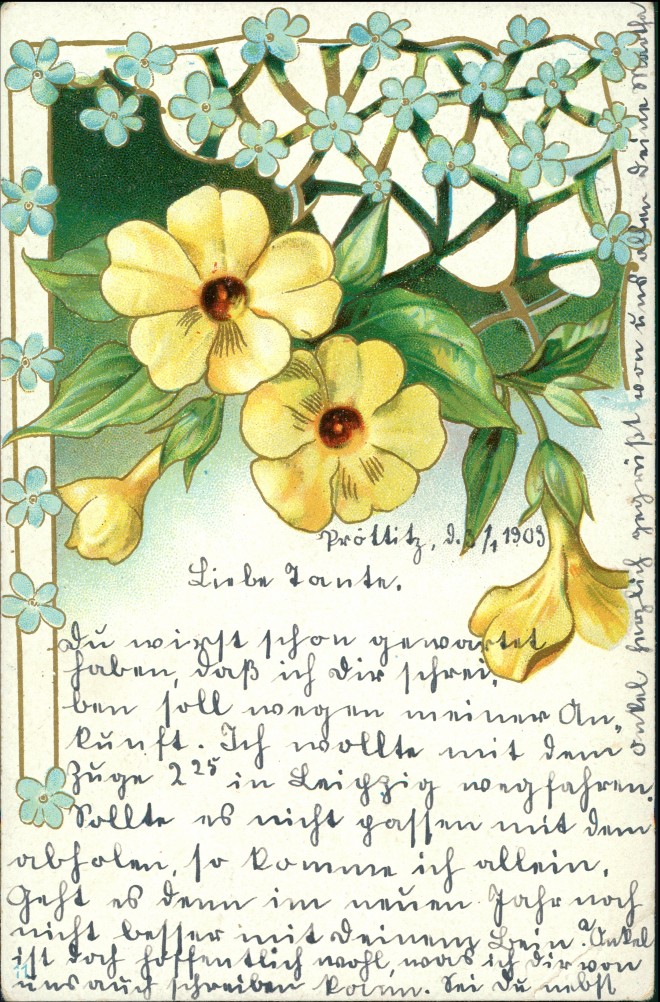 Pröttitz, d. 3/1 1903
Liebe Tante.
Du wirst schon gewartet
haben, daß ich Dir schrei,
ben soll wegen meiner An,
kunft. Ich wollte mit dem
Zuge 2 25 in Leipzig wegfahren.
Sollte es nicht passen mit dem
abholen, so komme ich allein.
Geht es denn im neuen Jahr noch
nicht besser mit Deinem Bein? Onkel
ist doch hoffentlich wohl, was ich dir von
uns auch schreiben kann. Sei Du nebst
Onkel herzlich gegrüßt von und allen Deine Martha